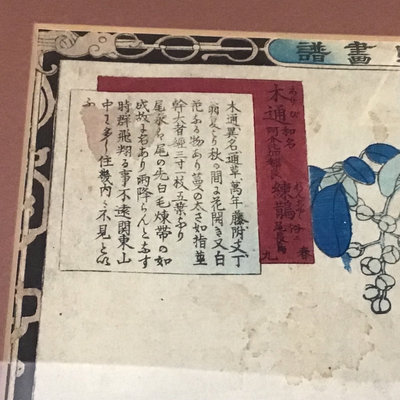 畫譜
木通
あけび
和名
練鵲
尾長鳥
春
九
木通異名通草萬年藤附支丁
翁夏より秋の間に花開き又白
花なる物あり蔓の大さ如指並
幹大者經三寸一枝五葉なり
尾永く尾の先白毛煉帯の如
成故に名あり雨降らんとなす
時群飛翔る事不遠関東山
中に多し住幾内に不見と以
ふ